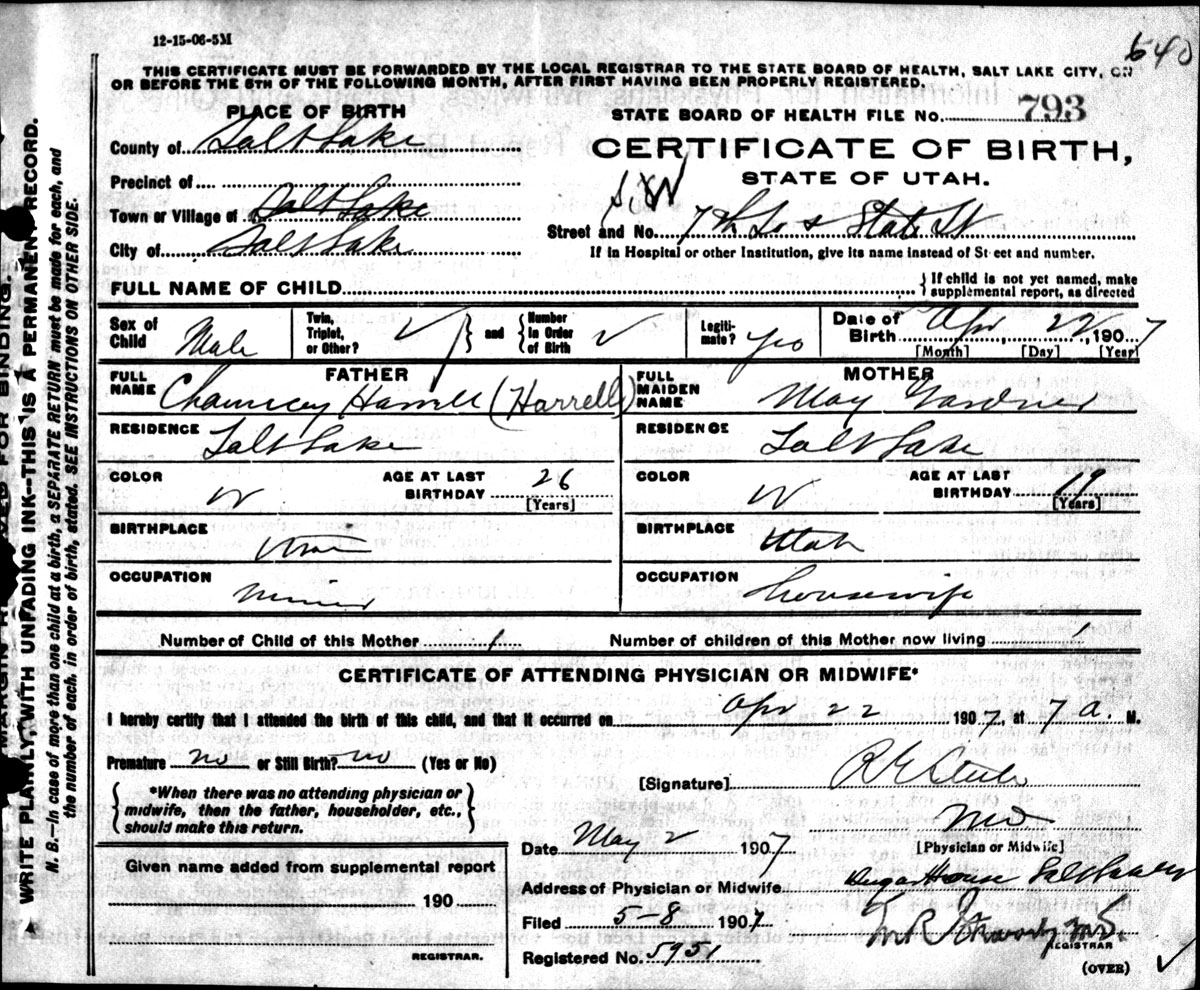 12-15-06-5M
640
THIS CERTIFICATE MUST BE FORWARDED BY THE LOCAL REGISTRAR TO THE STATE BOARD OF HEALTH, SALT LAKE CITY, ON
OR BEFORE THE 5TH OF THE FOLLOWING MONTH, AFTER FIRST HAVING BEEN PROPERLY REGISTERED.
PLACE OF BIRTH
STATE BOARD OF HEALTH FILE No. 793
County of Salt Lake
CERTIFICATE OF BIRTH,
Precinct of
STATE OF UTAH.
Town or Village of Salt Lake
Street and No. 7th So & State St
City of Salt Lake
If in Hospital or other Institution, give its name instead of Street and number.
FULL NAME OF CHILD
If child is not yet named, make
supplemental report, as directed
Sex of Child Male
Twin, Triplet, or Other? ✓ and Number in Order of Birth ✓
Legiti-mate? Yes
Date of Birth Apr 22, 1907
[Month] [Day] [Year]
FATHER
FULL NAME Chauncey Harrell (Harrell)
MOTHER
FULL MAIDEN NAME May Gardner
RESIDENCE Salt Lake
RESIDENCE Salt Lake
COLOR W AGE AT LAST BIRTHDAY 26 [Years]
COLOR W AGE AT LAST BIRTHDAY 19 [Years]
BIRTHPLACE Utah
BIRTHPLACE Utah
OCCUPATION Miner
OCCUPATION Housewife
Number of Child of this Mother 1
Number of children of this Mother now living 1
CERTIFICATE OF ATTENDING PHYSICIAN OR MIDWIFE*
I hereby certify that I attended the birth of this child, and that it occurred on Apr 22 1907, at 7 a. M.
Premature no or Still Birth? no (Yes or No)
[Signature] R E Steele
*When there was no attending physician or
midwife, then the father, householder, etc.,
should make this return.
MD
[Physician or Midwife]
Date May 2 1907
Given name added from supplemental report
190
REGISTRAR.
Address of Physician or Midwife Sugar House Salt Lake
Filed 5-8 1907
REGISTRAR
Registered No. 5951
(OVER)
MARGIN RESERVED FOR BINDING.
WRITE PLAINLY, WITH UNFADING INK—THIS IS A PERMANENT RECORD.
N. B.—In case of more than one child at a birth, a SEPARATE RETURN must be made for each, and
the number of each, in order of birth, stated. SEE INSTRUCTIONS ON OTHER SIDE.